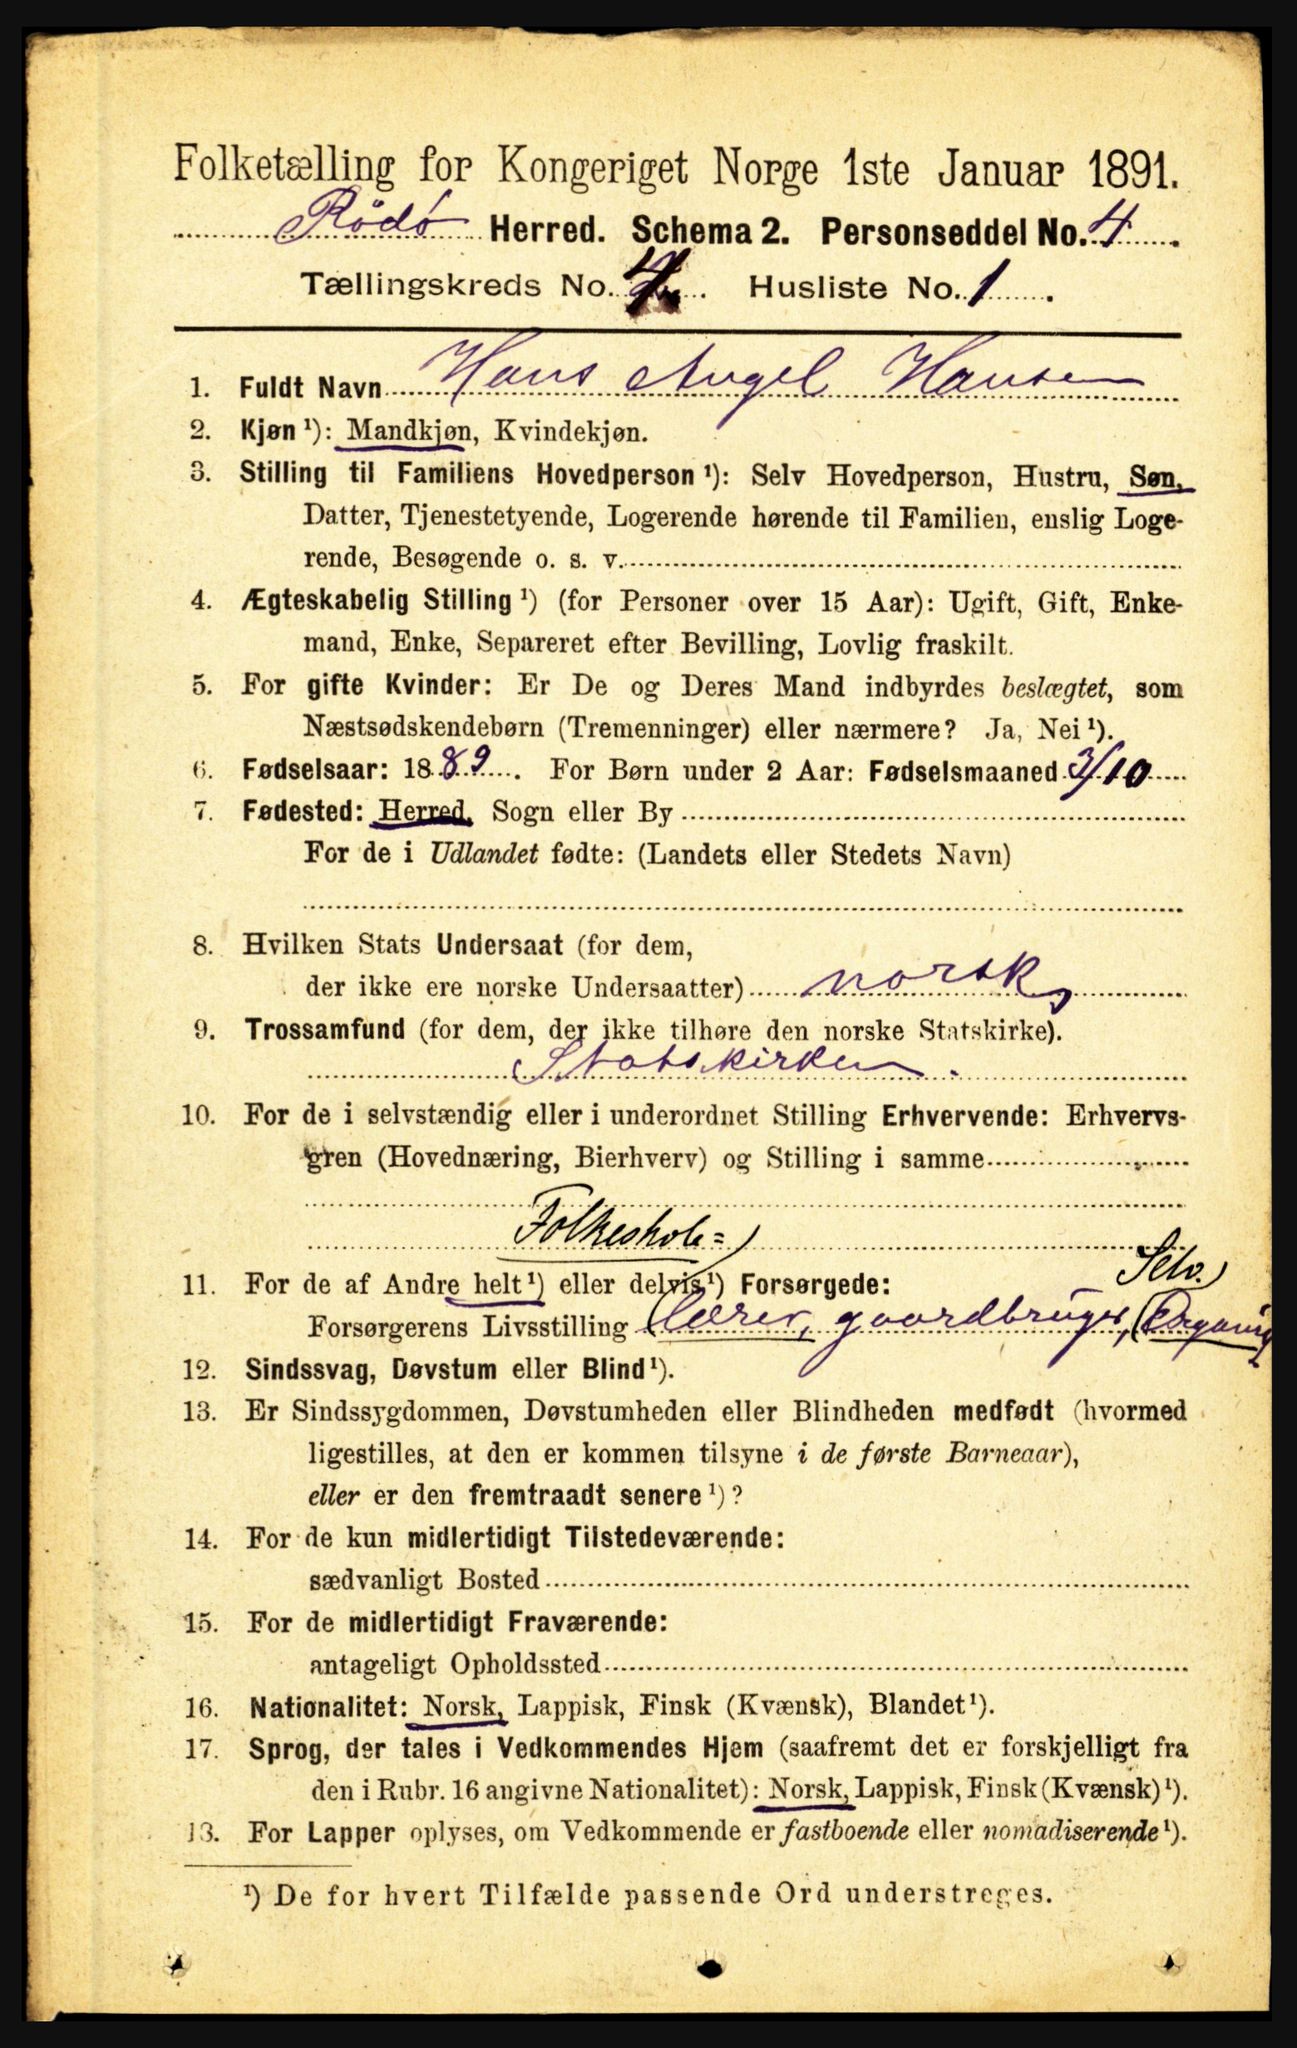 Folketælling for Kongeriget Norge 1ste Januar 1891.
Rödö Herred. Schema 2. Personseddel No. 4
Tællingskreds No. 4 Husliste No. 1
1. Fuldt Navn Hans Angel Hansen
2. Kjøn ¹): Mandkjøn, Kvindekjøn.
3. Stilling til Familiens Hovedperson ¹): Selv Hovedperson, Hustru, Søn,
Datter, Tjenestetyende, Logerende hørende til Familien, enslig Loge-
rende, Besøgende o. s. v.
4. Ægteskabelig Stilling ¹) (for Personer over 15 Aar): Ugift, Gift, Enke-
mand, Enke, Separeret efter Bevilling, Lovlig fraskilt.
5. For gifte Kvinder: Er De og Deres Mand indbyrdes beslægtet, som
Næstsødskendebørn (Tremenninger) eller nærmere? Ja, Nei ¹).
6. Fødselsaar: 1889. For Børn under 2 Aar: Fødselsmaaned 3/10
7. Fødested: Herred, Sogn eller By
For de i Udlandet fødte: (Landets eller Stedets Navn)
8. Hvilken Stats Undersaat (for dem,
der ikke ere norske Undersaatter) norsk,
9. Trossamfund (for dem, der ikke tilhøre den norske Statskirke).
Statskirken.
10. For de i selvstændig eller i underordnet Stilling Erhvervende: Erhvervs-
gren (Hovednæring, Bierhverv) og Stilling i samme
Folkeskole=
11. For de af Andre helt ¹) eller delvis ¹) Forsørgede: Selv.)
Forsørgerens Livsstilling (lærer, gaardbruger,
12. Sindssvag, Døvstum eller Blind ¹).
13. Er Sindssygdommen, Døvstumheden eller Blindheden medfødt (hvormed
ligestilles, at den er kommen tilsyne i de første Barneaar),
eller er den fremtraadt senere ¹)?
14. For de kun midlertidigt Tilstedeværende:
sædvanligt Bosted
15. For de midlertidigt Fraværende:
antageligt Opholdssted
16. Nationalitet: Norsk, Lappisk, Finsk (Kvænsk), Blandet ¹).
17. Sprog, der tales i Vedkommendes Hjem (saafremt det er forskjelligt fra
den i Rubr. 16 angivne Nationalitet): Norsk, Lappisk, Finsk (Kvænsk) ¹).
13. For Lapper oplyses, om Vedkommende er fastboende eller nomadiserende ¹).
¹) De for hvert Tilfælde passende Ord understreges.